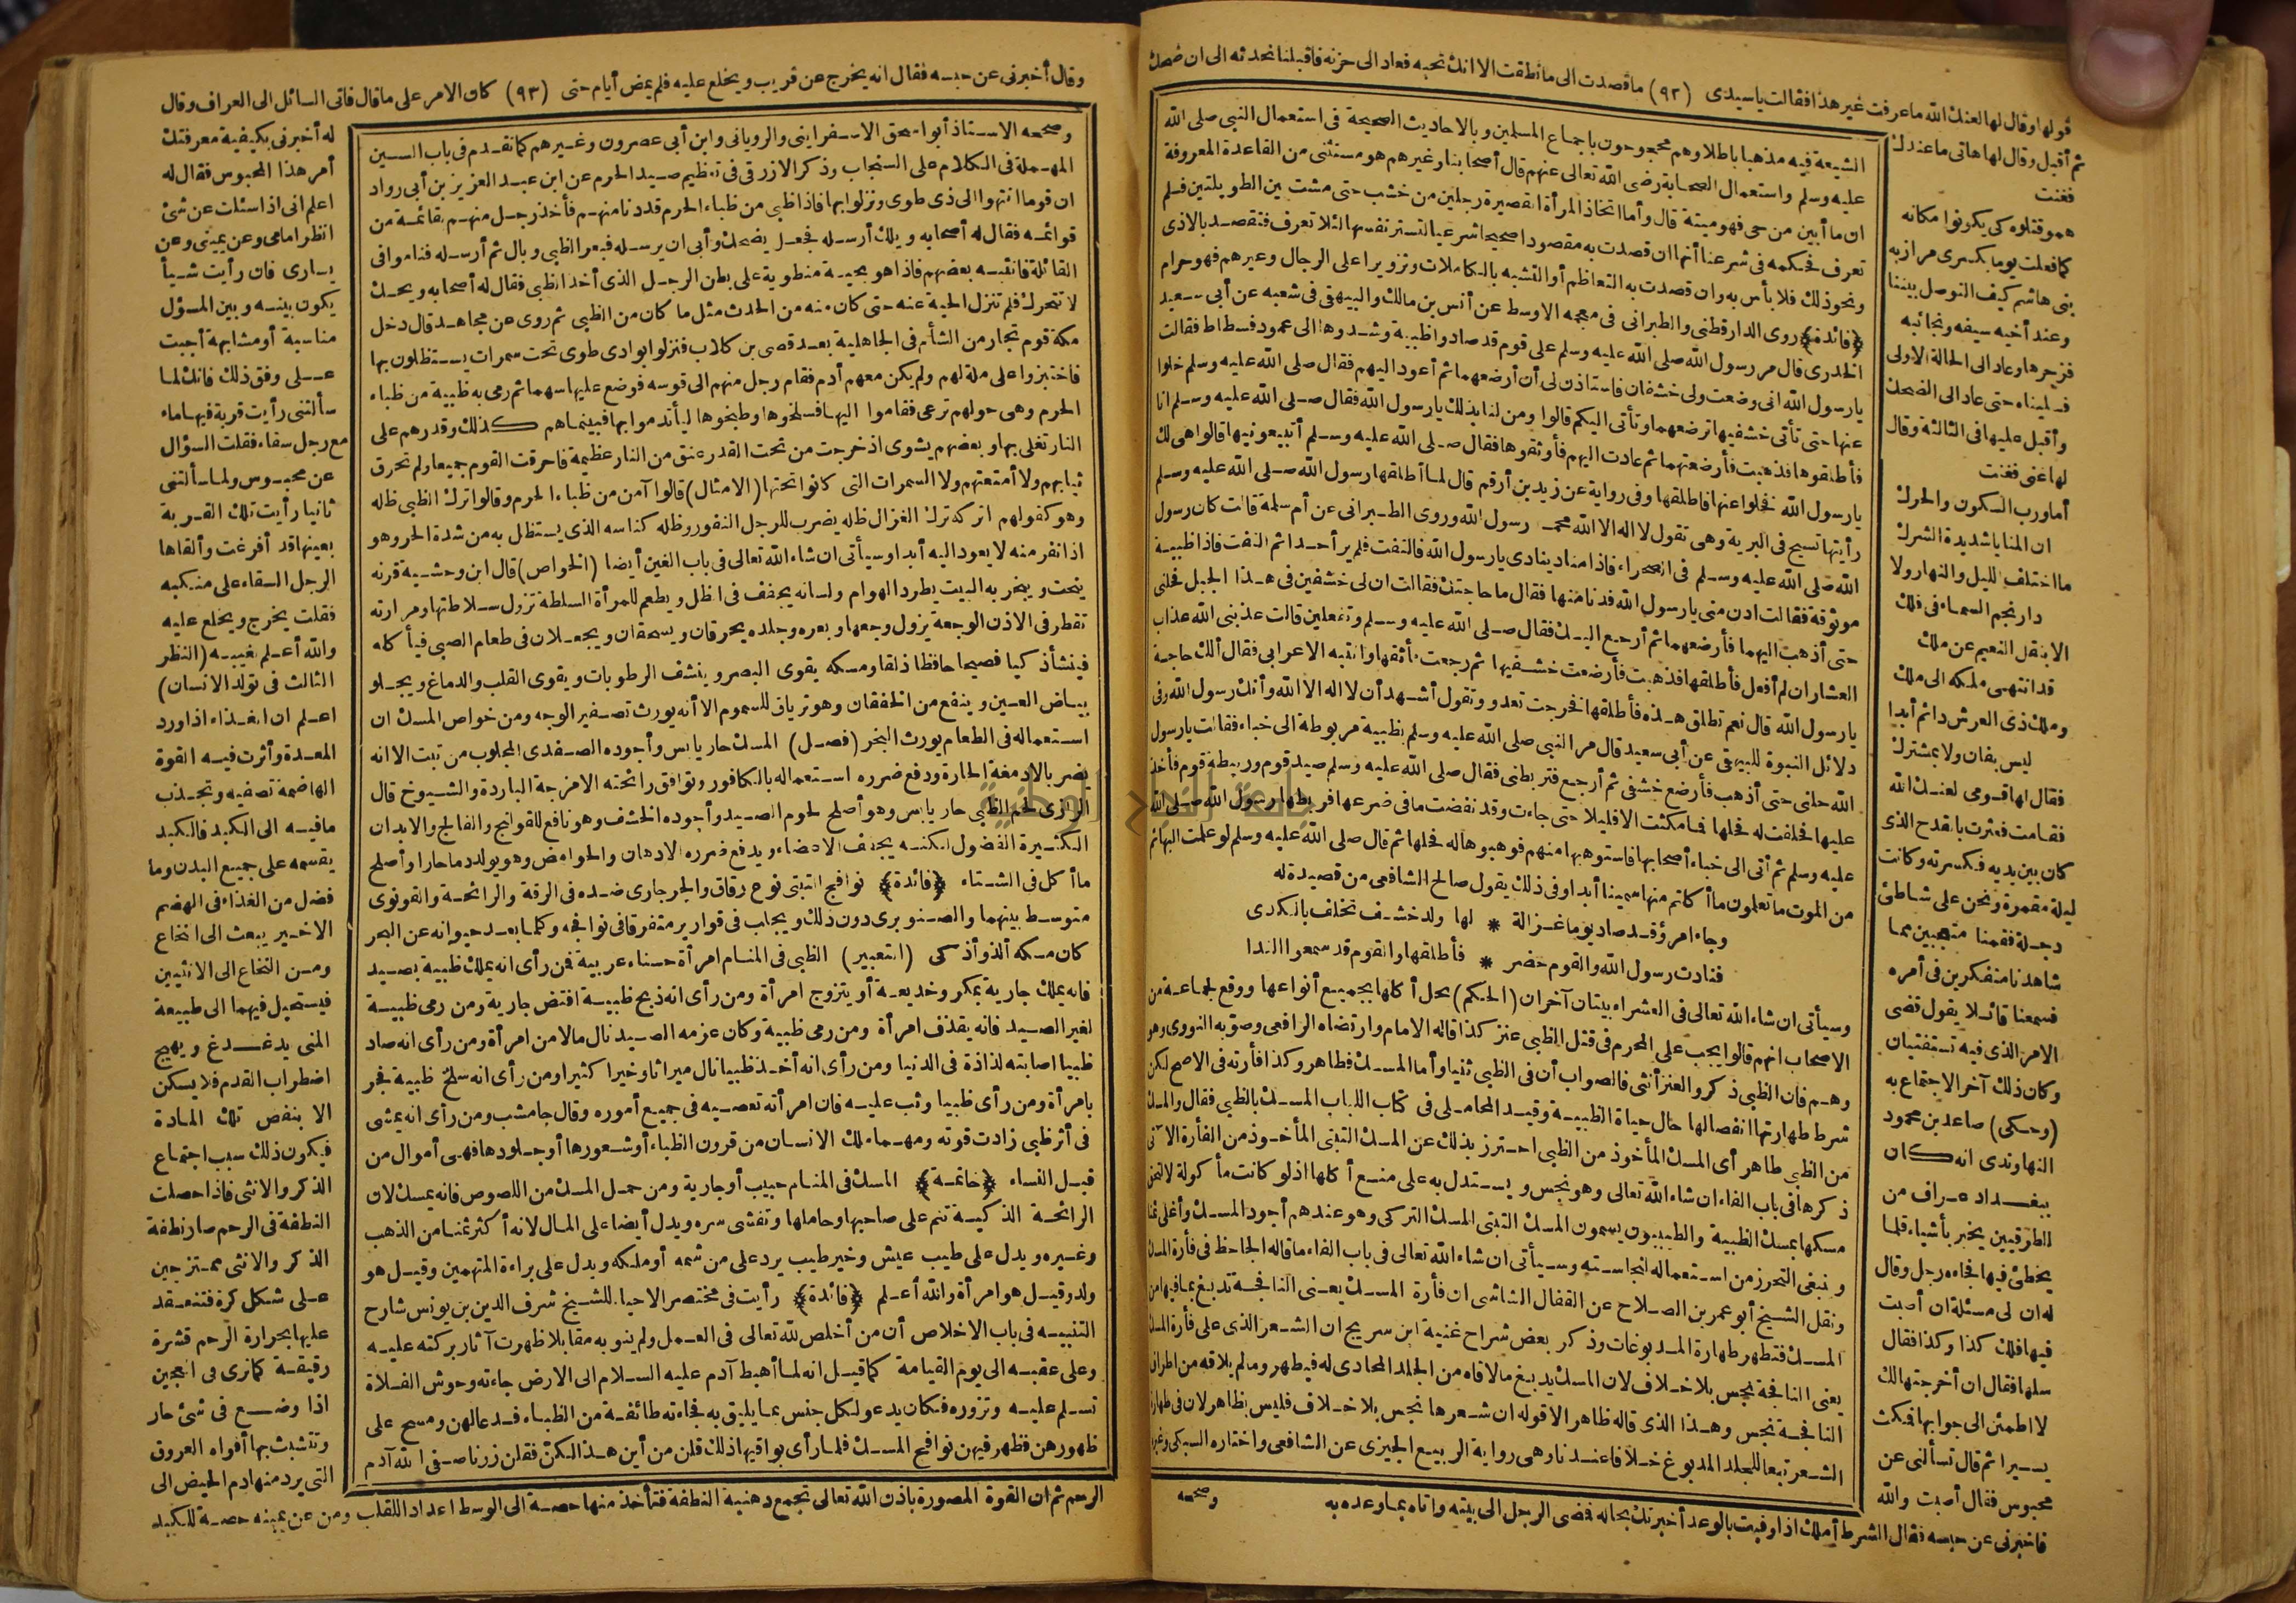 قولها وقال لها لعنك الله ما عرفت غير هذا فقالت يا سيدى (٩٢) ما قصدت الى ما نطقت الا انك تحبه فعاد الى حزنه فاقبلنا نحدثه الى ان ضحك
ثم أقبل وقال لها هاتى ما عندك
فغنت
همو قتلوه كى يكونوا مكانه
كما فعلت يوما بكسرى مرازبه
بنى هاشم كيف التوصل بيننا
وعند أخيه سيفه ونجائبه
فزجرها وعاد الى الحالة الاولى
فسليناه حتى عاد الى الضحك
وأقبل عليها فى الثالثة وقال
لها غنى فغنت
أما ورب السكون والحرك
ان المنايا شديدة الشرك
ما اختلف الليل والنهار ولا
دار نجم السماء فى فلك
الا بنقل النعيم عن ملك
قد انتهى ملكه الى ملك
وملك ذى العرش دائم أبدا
ليس بفان ولا بمشترك
فقال لها قومى لعنك الله
فقامت فعثرت بالقدح الذى
كان بين يديه فكسرته وكانت
ليلة مقمرة ونحن على شاطئ
دجلة فقمنا متعجبين مما
شاهدنا متفكرين فى أمره
فسمعنا قائلا يقول قضى
الامر الذى فيه تستفتيان
وكان ذلك آخر الاجتماع به
(وحكى) صاعد بن محمود
النهاوندى انه كان
ببغداد عراف من
الطرقيين يخبر بأشياء قلما
يخطئ فيها فجاءه رجل وقال
له ان لى مسئلة ان أصبت
فيها فلك كذا وكذا فقال
سلها فقال ان أخرجتها لك
لا اطمئن الى جوابها فمكث
يسيرا ثم قال تسألنى عن
محبوس فقال أصبت والله
فاخبرنى عن حبسه فقال الشرط أملك اذا وفيت بالوعد أخبرتك بحاله فمضى الرجل الى بيته واتاه بما وعده به
الشيعة فيه مذهبا باطلا وهم محجوجون باجماع المسلمين وبالاحاديث الصحيحة فى استعمال النبى صلى الله
عليه وسلم واستعمال الصحابة رضى الله تعالى عنهم قال أصحابنا وغيرهم هو مستثنى من القاعدة المعروفة
ان ما أبين من حى فهو ميتة قال وأما اتخاذ المرأة القصيرة رجلين من خشب حتى مشت بين الطويلتين فلم
تعرف فحكمه فى شرعنا أنها ان قصدت به مقصودا صحيحا شرعيا لتستر نفسها لئلا تعرف فتقصد بالاذى
ونحو ذلك فلا بأس به وان قصدت به التعاظم أو التشبه بالكاملات وتزويرا على الرجال وغيرهم فهو حرام
﴿فائدة﴾ روى الدارقطنى والطبرانى فى معجمه الاوسط عن أنس بن مالك والبيهقى فى شعبه عن أبى سعيد
الخدرى قال مر رسول الله صلى الله عليه وسلم على قوم قد صادوا ظبية وشدوها الى عمود فسطاط فقالت
يا رسول الله انى وضعت ولى خشفان فاستاذن لى أن أرضعهما ثم أعود اليهم فقال صلى الله عليه وسلم خلوا
عنها حتى تأتى خشفيها ترضعهما وتأتى اليكم قالوا ومن لنا بذلك يا رسول الله فقال صلى الله عليه وسلم انا
فأطلقوها فذهبت فأرضعتهما ثم عادت اليهم فأوثقوها فقال صلى الله عليه وسلم أتبيعونيها قالوا هى لك
يا رسول الله فخلوا عنها فاطلقها وفى رواية عن زيد بن أرقم قال لما أطلقها رسول الله صلى الله عليه وسلم
رأيتها تسيح فى البرية وهى تقول لا اله الا الله محمد رسول الله وروى الطبرانى عن أم سلمة قالت كان رسول
الله صلى الله عليه وسلم فى الصحراء فاذا مناد ينادى يا رسول الله فالتفت فلم ير أحدا ثم التفت فاذا ظبية
موثوقة فقالت ادن منى يا رسول الله فدنا منها فقال ما حاجتك فقالت ان لى خشفين فى هذا الجبل فحلنى
حتى أذهب اليهما فأرضعهما ثم أرجع اليك فقال صلى الله عليه وسلم وتفعلين قالت عذبنى الله عذاب
العشار ان لم أفعل فأطلقها فذهبت فأرضعت خشفيها ثم رجعت فأوثقها وانتبه الاعرابى فقال ألك حاجة
يا رسول الله قال نعم تطلق هذه فأطلقها فخرجت تعدو وتقول أشهد أن لا اله الا الله وأنك رسول الله وفى
دلائل النبوة للبيهقى عن أبى سعيد قال مر النبى صلى الله عليه وسلم بظبية مربوطة الى خباء فقالت يا رسول
الله حلنى حتى أذهب فأرضع خشفى ثم أرجع فتربطنى فقال صلى الله عليه وسلم صيد قوم وربيطة قوم فأخذ
عليها فحلفت له فحلها فما مكثت الا قليلا حتى جاءت وقد نفضت ما فى ضرعها فربطها رسول الله صلى الله
عليه وسلم ثم أتى الى خباء أصحابها فاستوهبها منهم فوهبوها له فحلها ثم قال صلى الله عليه وسلم لو علمت البهائم
من الموت ما تعلمون ما أكلتم منها سمينا أبدا وفى ذلك يقول صالح الشافعى من قصيدة له
وجاء امرؤ قد صاد يوما غزالة * لها ولد خشف تخلف بالكدى
فنادت رسول الله والقوم حضر * فأطلقها والقوم قد سمعوا الندا
وسيأتى ان شاء الله تعالى فى العشراء بيتان آخران (الحكم) يحل أكلها بجميع أنواعها ووقع لجماعة من
الاصحاب انهم قالوا يجب على المحرم فى قتل الظبى عنز كذا قاله الامام وارتضاه الرافعى وصوبه النووى وهو
وهم فان الظبى ذكر والعنز أنثى فالصواب أن فى الظبى ثنيا وأما المسك فطاهر وكذا فأرته فى الاصح لكن
شرط طهارتها انفصالها حال حياة الظبية وقيد المحاملى فى كتاب اللباب المسك بالظبى فقال والمسك
من الظبى طاهر أى المسك المأخوذ من الظبى احترز بذلك عن المسك التبتى المأخوذ من الفأرة الآتى
ذكرها فى باب الفاء ان شاء الله تعالى وهو نجس ويستدل به على منع أكلها اذ لو كانت مأكولة لالتحق
مسكها بمسك الظبية والطيبيون يسمون المسك التبتى المسك التركى وهو عندهم أجود المسك وأغلى ثمنا
وينبغى التحرز من استعماله لنجاسته وسيأتى ان شاء الله تعالى فى باب الفاء ما قاله الجاحظ فى فأرة المسك
ونقل الشيخ أبو عمر بن الصلاح عن القفال الشاشى ان فأرة المسك يعنى النافجة تدبغ بما فيها من
المسك فتطهر طهارة المدبوغات وذكر بعض شراح غنية ابن سريج ان الشعر الذى على فأرة المسك
يعنى النافجة نجس بلا خلاف لان المسك يدبغ ما لاقاه من الجلد المحاذى له فيطهر وما لم يلاقه من اطراف
النافجة نجس وهذا الذى قاله ظاهر الا قوله ان شعرها نجس بلا خلاف فليس بظاهر لان فى طهارة
الشعر تبعا للجلد المدبوغ خلافا عندنا وهى رواية الربيع الجيزى عن الشافعى واختاره السبكى وغيره
وصححه
وقال أخبرنى عن حبسه فقال انه يخرج عن قريب ويخلع عليه فلم يمض أيام حتى (٩٣) كان الامر على ما قال فاتى السائل الى العراف وقال
وصححه الاستاذ أبو اسحق الاسفراينى والرويانى وابن أبى عصرون وغيرهم كما تقدم فى باب السين
المهملة فى الكلام على السنجاب وذكر الازرقى فى تعظيم صيد الحرم عن ابن عبد العزيز بن أبى رواد
ان قوما انتهوا الى ذى طوى ونزلوا بها فاذا ظبى من ظباء الحرم قد دنا منهم فأخذ رجل منهم بقائمة من
قوائمه فقال له أصحابه ويلك أرسله فجعل يضحك وأبى ان يرسله فبعر الظبى وبال ثم أرسله فناموا فى
القائلة فانتبه بعضهم فاذا هو بحية منطوية على بطن الرجل الذى أخذ الظبى فقال له أصحابه ويحك
لا تتحرك فلم تنزل الحية عنه حتى كان منه من الحدث مثل ما كان من الظبى ثم روى عن مجاهد قال دخل
مكة قوم تجار من الشأم فى الجاهلية بعد قصى بن كلاب فنزلوا بوادى طوى تحت سمرات يستظلون بها
فاختبزوا على ملة لهم ولم يكن معهم أدم فقام رجل منهم الى قوسه فوضع عليها سهما ثم رمى به ظبية من ظباء
الحرم وهى حولهم ترعى فقاموا اليها فسلخوها وطبخوها ليأتدموا بها فبينما هم كذلك وقدرهم على
النار تغلى بها وبعضهم يشوى اذ خرجت من تحت القدر عنق من النار عظيمة فاحرقت القوم جميعا ولم تحرق
ثيابهم ولا أمتعتهم ولا السمرات التى كانوا تحتها (الامثال) قالوا آمن من ظباء الحرم وقالوا ترك الظبى ظله
وهو كقولهم اتركه ترك الغزال ظله يضرب للرجل النفور وظله كناسه الذى يستظل به من شدة الحر وهو
اذا نفر منه لا يعود اليه أبدا وسيأتى ان شاء الله تعالى فى باب الغين أيضا (الخواص) قال ابن وحشية قرنه
ينحت ويبخر به البيت يطرد الهوام ولسانه يجفف فى الظل ويطعم للمرأة السلطة تزول سلاطتها ومرارته
تقطر فى الاذن الوجعة يزول وجعها وبعره وجلده يحرقان ويسحقان ويجعلان فى طعام الصبى فيأكله
فينشأ ذكيا فصيحا حافظا ذلقا ومسكه يقوى البصر وينشف الرطوبات ويقوى القلب والدماغ ويجلو
بياض العين وينفع من الخفقان وهو ترياق للسموم الا أنه يورث تصفير الوجه ومن خواص المسك ان
استعماله فى الطعام يورث البخر (فصل) المسك حار يابس وأجوده الصغدى المجلوب من تبت الا انه
يضر بالادمغة الحارة ودفع ضرره استعماله بالكافور وتوافق رائحته الامزجة الباردة والشيوخ قال
الرازى لحم الظبى حار يابس وهو أصلح لحوم الصيد وأجوده الخشف وهو نافع للقولنج والفالج والابدان
الكثيرة الفضول لكنه يجفف الاعضاء ويدفع ضرره الادهان والحوامض وهو يولد دما حارا وأصلح
ما أكل فى الشتاء ﴿فائدة﴾ نوافج التبتى نوع رقاق والجرجارى ضده فى الرقة والرائحة والقونوى
متوسط بينهما والصنوبرى دون ذلك ويجلب فى قوارير متفرقا فى نوافجه وكلما بعد حيوانه عن البحر
كان مسكه ألذ وأذكى (التعبير) الظبى فى المنام امرأة حسناء عربية فمن رأى انه يملك ظبية بصيد
فانه يملك جارية بمكر وخديعة أو يتزوج امرأة ومن رأى انه ذبح ظبية افتض جارية ومن رمى ظبية
لغير الصيد فانه يقذف امرأة ومن رمى ظبية وكان عزمه الصيد نال مالا من امرأة ومن رأى انه صاد
ظبيا اصابته لذاذة فى الدنيا ومن رأى انه أخذ ظبيا نال ميراثا وخيرا كثيرا ومن رأى انه سلخ ظبية فجر
بامرأة ومن رأى ظبيا وثب عليه فان امرأته تعصيه فى جميع أموره وقال جاماسب ومن رأى انه يمشى
فى أثر ظبى زادت قوته ومهما ملك الانسان من قرون الظباء أو شعورها أو جلودها فهى أموال من
قبل النساء ﴿خاتمة﴾ المسك فى المنام حبيب أو جارية ومن حمل المسك من اللصوص فانه يمسك لان
الرائحة الذكية تنم على صاحبها وحاملها وتفشى سره ويدل أيضا على المال لانه أكثر ثمنا من الذهب
وغيره ويدل على طيب عيش وخير طيب يرد على من شمه أو ملكه ويدل على براءة المتهمين وقيل هو
ولد وقيل هو امرأة والله أعلم ﴿فائدة﴾ رأيت فى مختصر الاحياء للشيخ شرف الدين بن يونس شارح
التنبيه فى باب الاخلاص أن من أخلص لله تعالى فى العمل ولم ينو به مقابلا ظهرت آثار بركته عليه
وعلى عقبه الى يوم القيامة كما قيل انه لما أهبط آدم عليه السلام الى الارض جاءته وحوش الفلاة
تسلم عليه وتزوره فكان يدعو لكل جنس بما يليق به فجاءته طائفة من الظباء فدعا لهن ومسح على
ظهورهن فظهر فيهن نوافج المسك فلما رأى بواقيها ذلك قلن من أين هذا لكن فقلن زرنا صفى الله آدم
له أخبرنى بكيفية معرفتك
أمر هذا المحبوس فقال له
اعلم انى اذا سئلت عن شئ
انظر امامى وعن يمينى وعن
يسارى فان رأيت شيأ
يكون بينه وبين المسؤل
مناسبة أو مشابهة أجبت
على وفق ذلك فانك لما
سألتنى رأيت قربة فيها ماء
مع رجل سقاء فقلت السؤال
عن محبوس ولما سألتنى
ثانيا رأيت تلك القربة
بعينها قد أفرغت وألقاها
الرجل السقاء على منكبيه
فقلت يخرج ويخلع عليه
والله أعلم بغيبه (النظر
الثالث فى تولد الانسان)
اعلم ان الغذاء اذا ورد
المعدة وأثرت فيه القوة
الهاضمة تصفيه وتجذب
ما فيه الى الكبد فالكبد
يقسمه على جميع البدن وما
فضل من الغذاء فى الهضم
الاخير يبعث الى النخاع
ومن النخاع الى الانثيين
فيستحيل فيهما الى طبيعة
المنى يدغدغ ويهيج
اضطراب القدم فلا يسكن
الا بنفض تلك المادة
فيكون ذلك سبب اجتماع
الذكر والانثى فاذا حصلت
النطفة فى الرحم صار نطفة
الذكر والانثى ممتزجين
على شكل كرة فتنعقد
عليها بحرارة الرحم قشرة
رقيقة كما نرى فى العجين
اذا وضع فى شئ حار
وتتشبث بها أفواه العروق
التى يرد منها دم الحيض الى
الرحم ثم ان القوة المصورة باذن الله تعالى تجمع دهنية النطفة فتأخذ منها حصة الى الوسط اعداد اللقلب ومن عن يمينه حصة للكبد
جامعة النجاح الوطنية